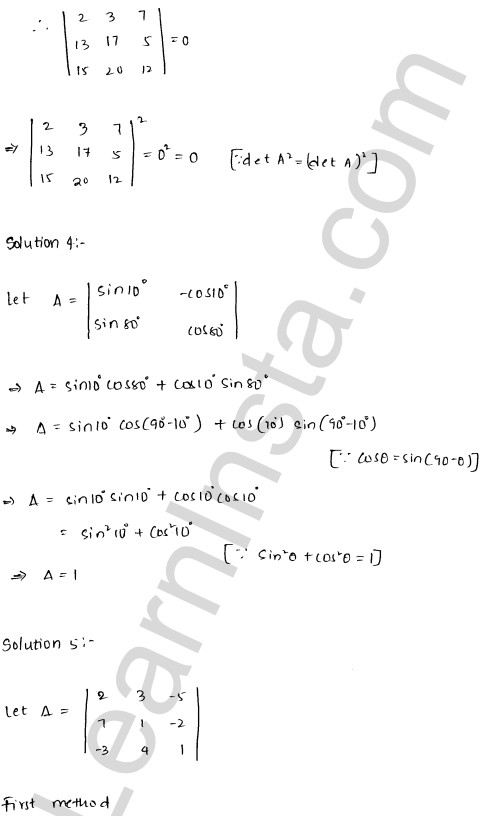 ∴ | 2 3 7 |
| 13 17 5 | = 0
| 15 20 12 |
⇒ | 2 3 7 |²
| 13 17 5 | = 0² = 0 [∵ det A² = (det A)²]
| 15 20 12 |
Solution 4:-
Let A = | sin10° -cos10° |
| sin80° cos80° |
⇒ A = sin10° cos80° + cos10° sin80°
⇒ A = sin10° cos(90°-10°) + cos(10°) sin(90°-10°)
[∵ cosθ = sin(90-θ)]
⇒ A = sin10° sin10° + cos10° cos10°
= sin²10° + cos²10°
[∵ sin²θ + cos²θ = 1]
⇒ A = 1
Solution 5:-
Let A = | 2 3 -5 |
| 7 1 -2 |
| -3 4 1 |
First method
LearnInsta.com